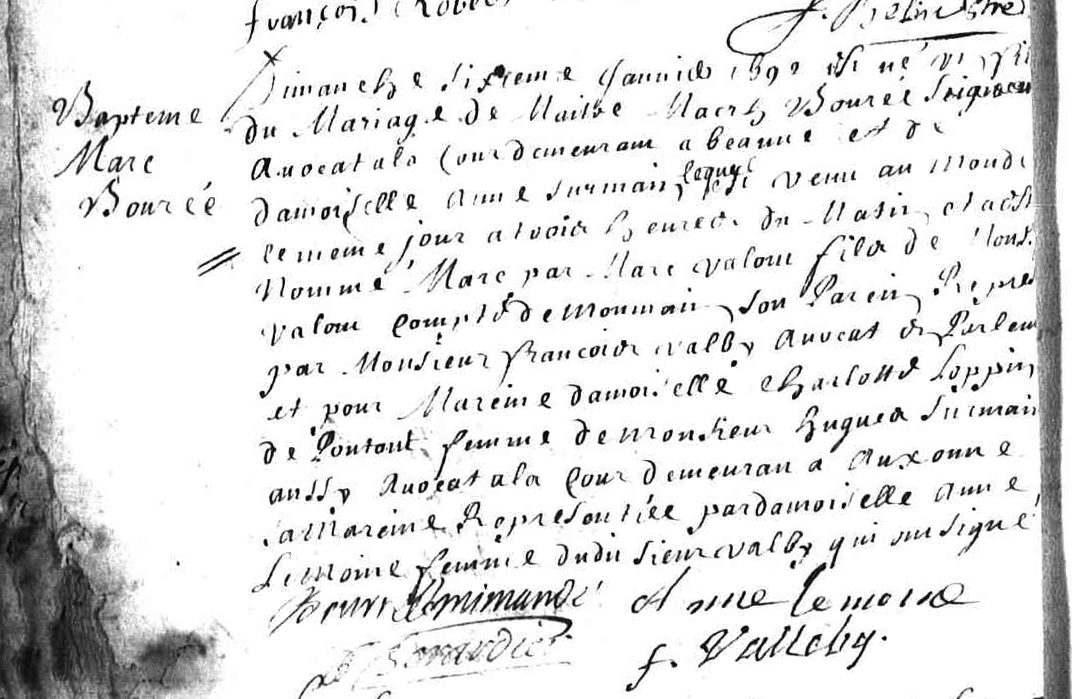 françois Robe
Bapteme
Marc
Bourée
Dimanche sixieme Janvier 1692 est né un fil
du Mariage de Maitre Marc Bourée Seigneu
Avocat ala Cour demeurant a beaune et de
damoiselle Anne Surmain lequel est venu au monde
le meme jour a trois heures du Matin et a est
Nommé Marc par Marc valon fils de Mons.
valon Compte de Monmain son Parein Repres
par Monsieur francois valby Avocat en Parlem
et pour Mareine damoiselle Charlotte Loppin
de Pontout femme de monsieur hugues Surmain
aussy Avocat ala Cour demeuran a Auxonne
la Mareine Representée par damoiselle Anne
Lemoine femme dudit sieur valby qui ont signé
Anne Lemoine
f. Valleby.